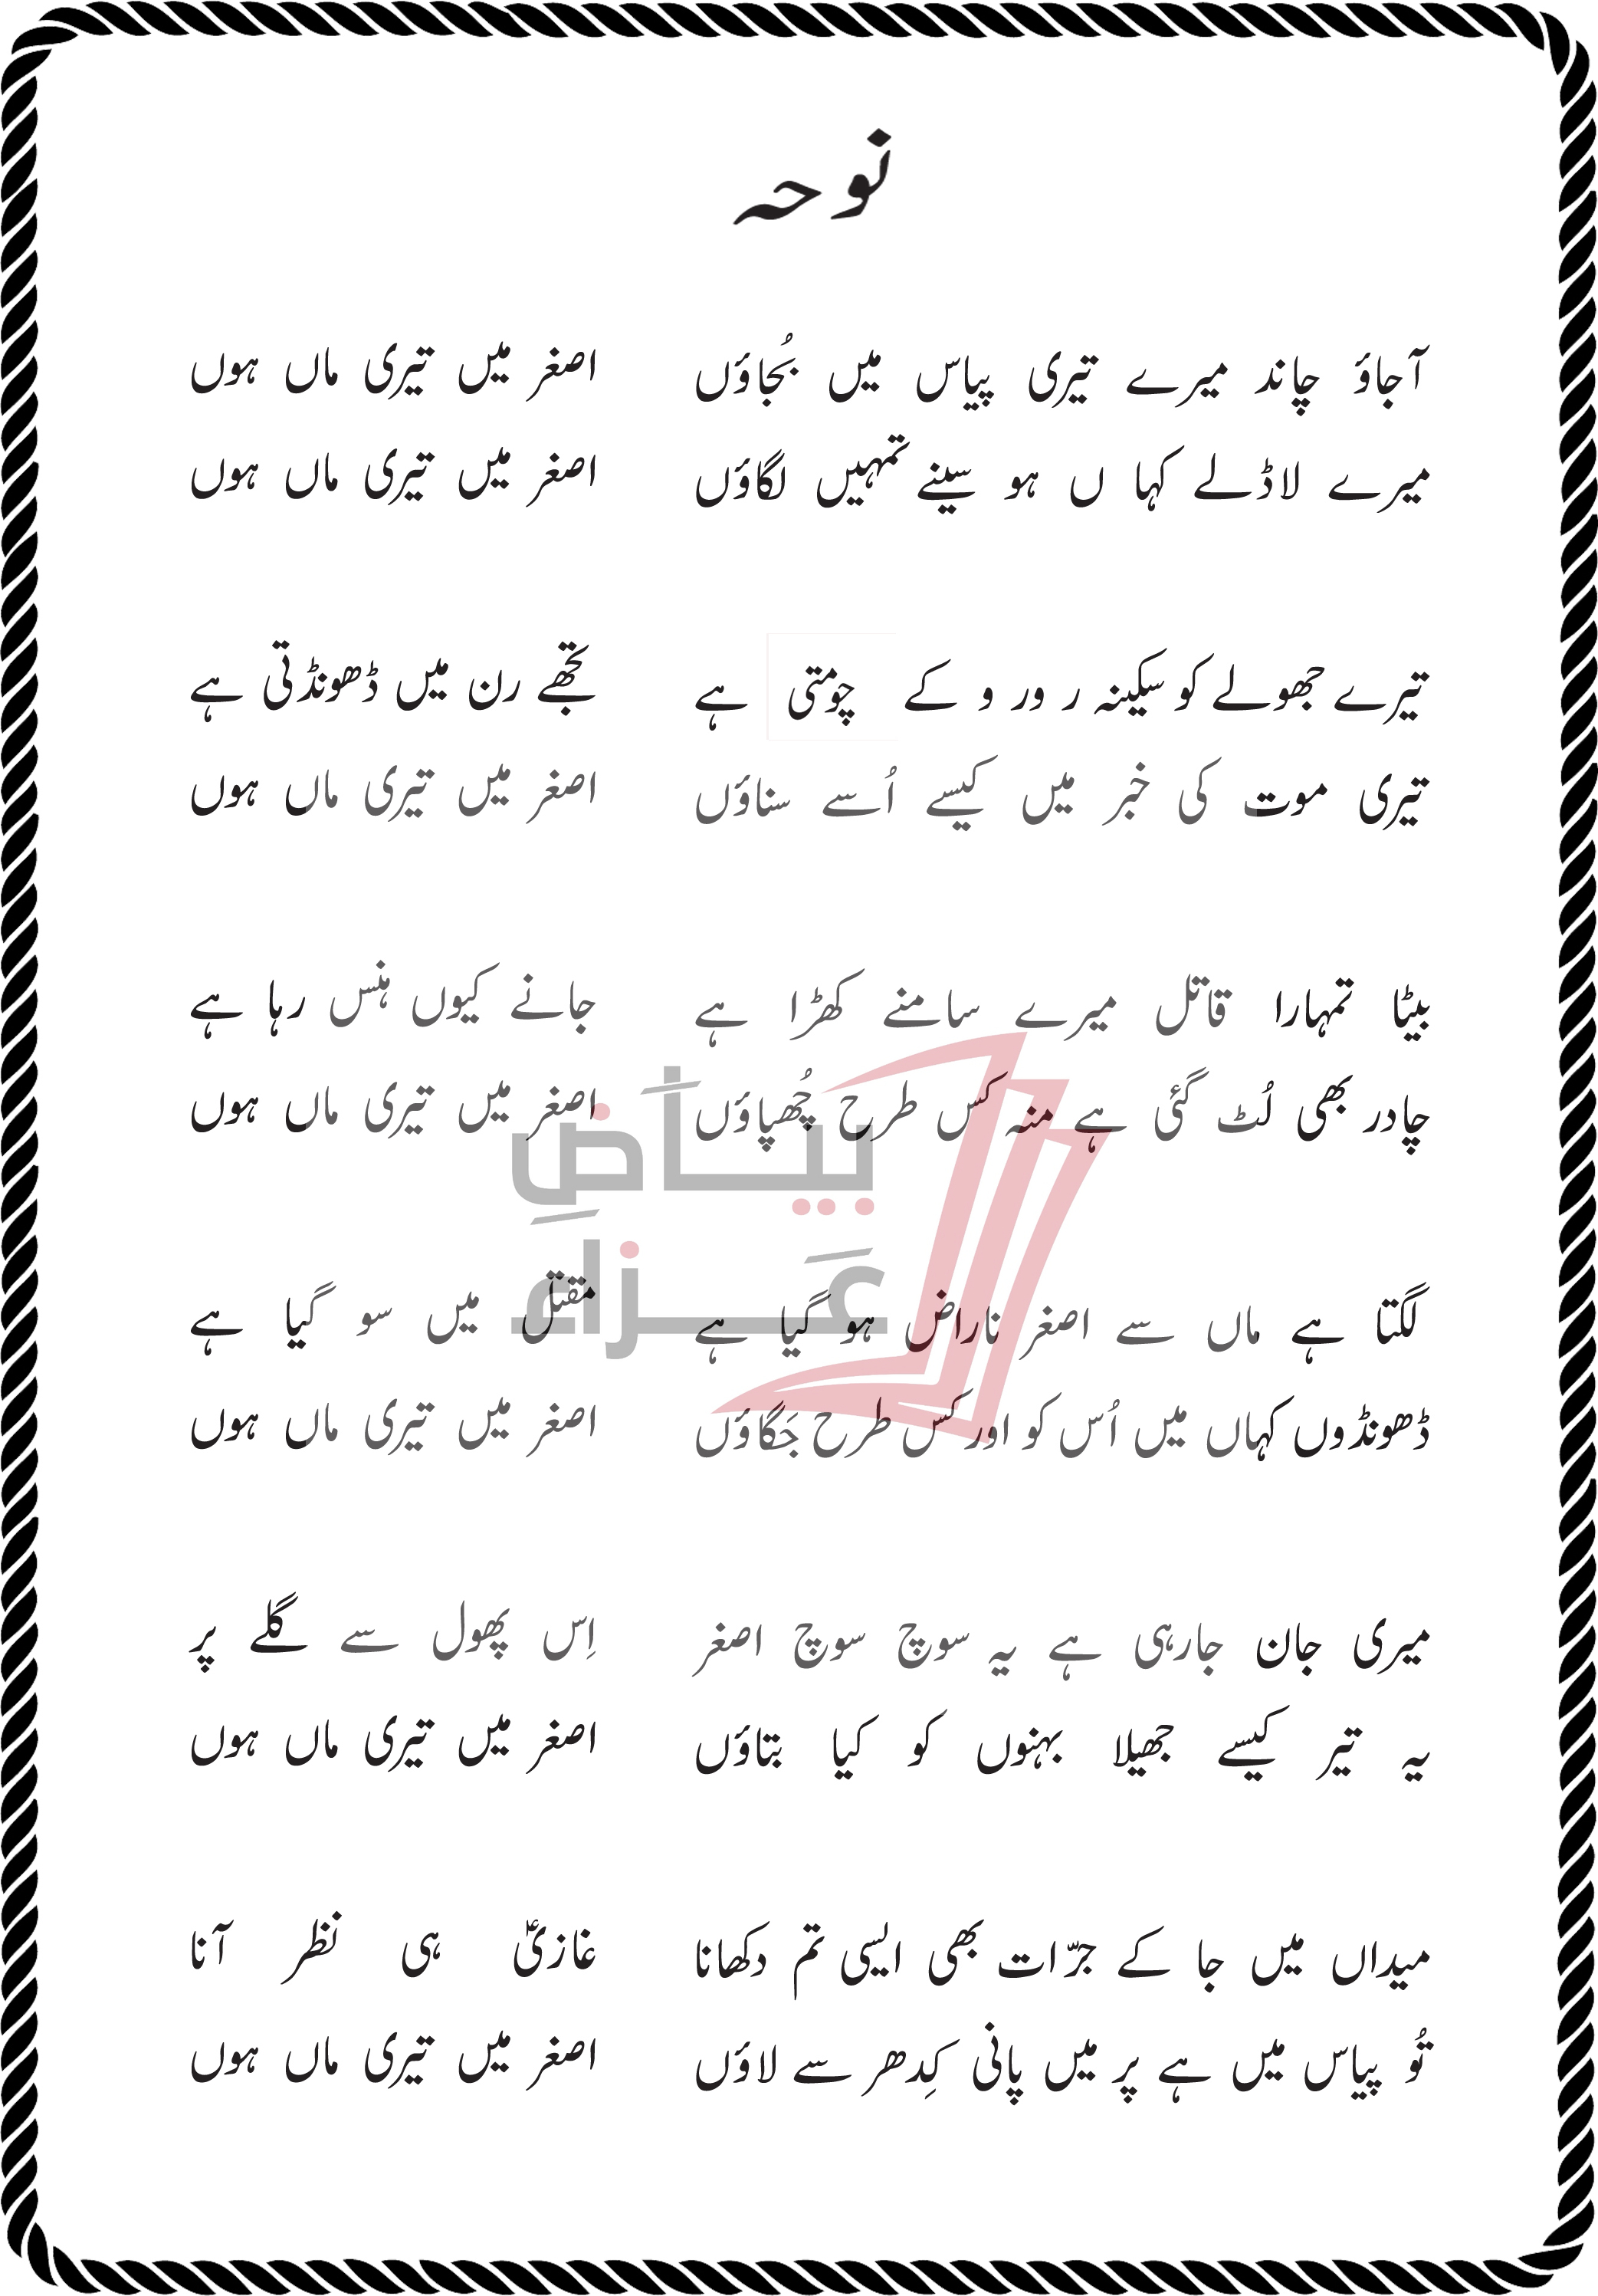 نوحہ
آجاؤ چاند میرے تیری پیاس میں بُجاؤں اصغر میں تیری ماں ہوں
میرے لاڈلے کہا ں ہو سینے تمہیں لگاؤں اصغر میں تیری ماں ہوں
تیرے جھولے کو سکینہ ر ور و کے چومتی ہے تجھے رن میں ڈھونڈتی ہے
تیری موت کی خبر میں کیسے اُسے سناؤں اصغر میں تیری ماں ہوں
بیٹا تمہارا قاتل میرے سامنے کھڑا ہے جانے کیوں ہنس رہا ہے
چادر بھی لُٹ گئی ہے منہ کس طرح چُھپاؤں اصغر میں تیری ماں ہوں
بیاضِ
عَزاء
لگتا ہے ماں سے اصغر ناراض ہو گیا ہے مقتل میں سو گیا ہے
ڈھونڈوں کہاں میں اُس کو اور کس طرح جَگاؤں اصغر میں تیری ماں ہوں
میری جان جارہی ہے یہ سوچ سوچ اصغر اِس پھول سے گلے پر
یہ تیر کیسے جھیلا بہنوں کو کیا بتاؤں اصغر میں تیری ماں ہوں
میداں میں جا کے جرّات بھی ایسی تم دکھانا غازیؑ ہی نظر آنا
تُو پیاس میں ہے پر میں پانی کِدھر سے لاؤں اصغر میں تیری ماں ہوں